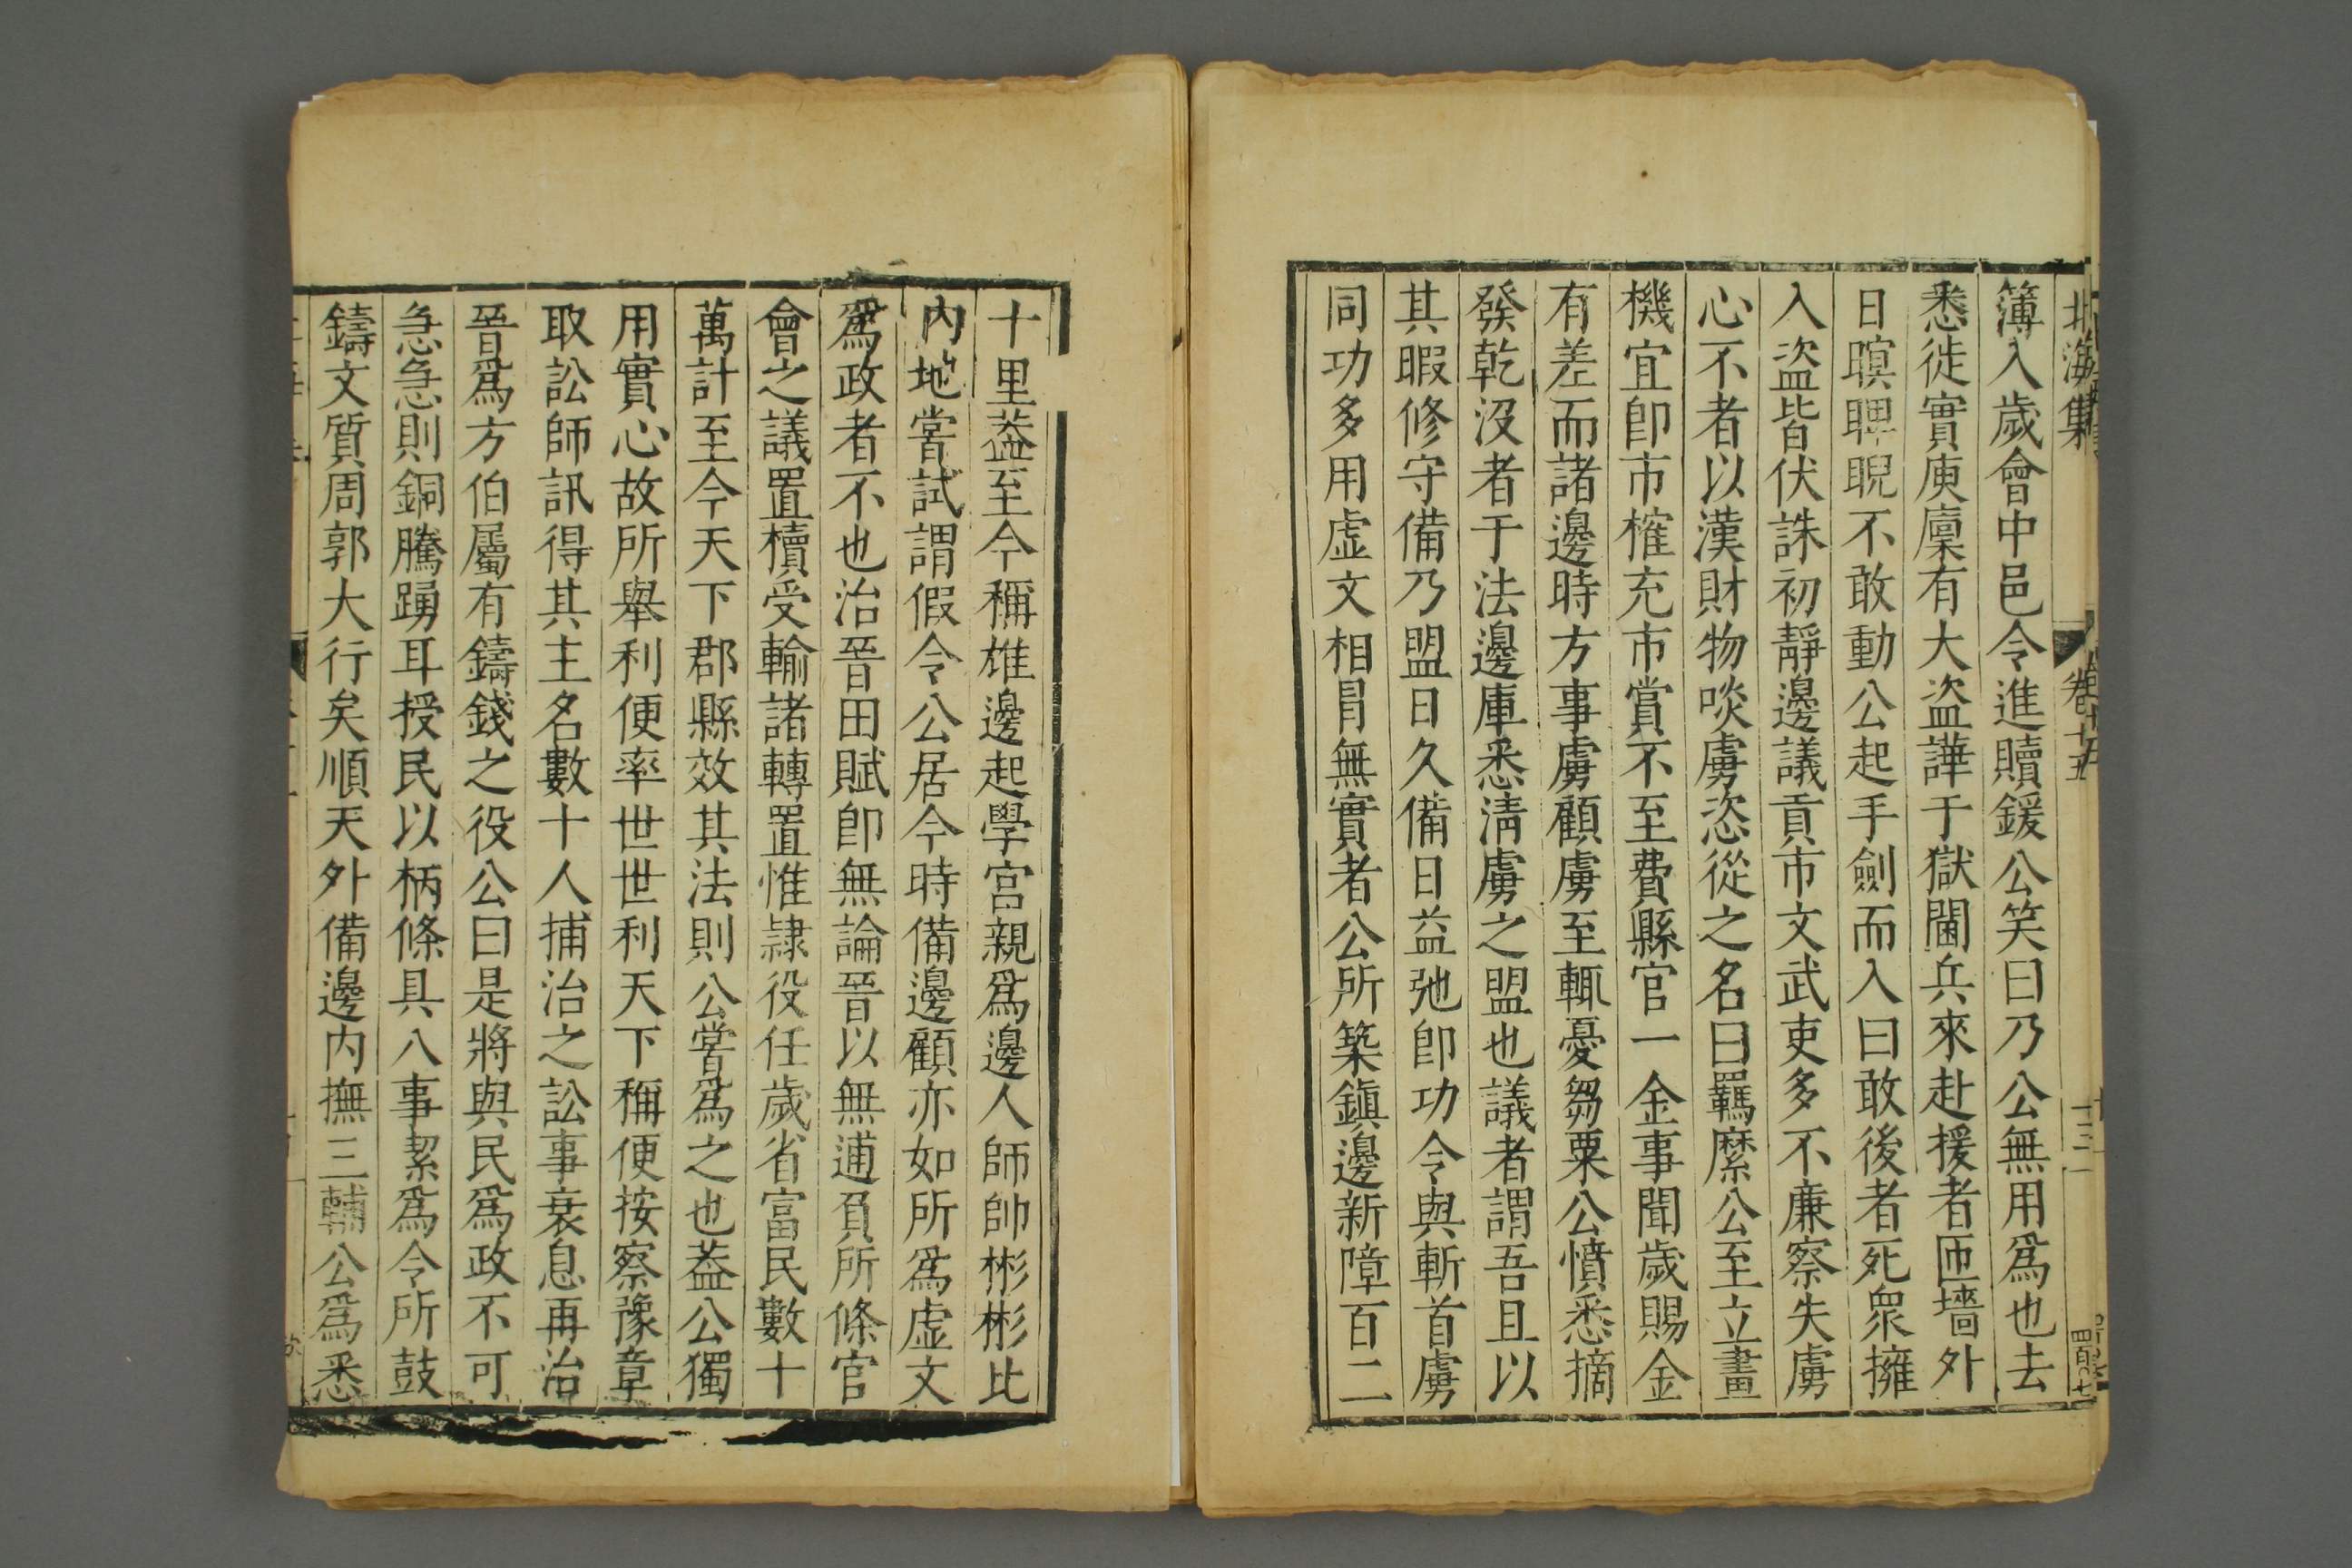 北海集 卷十五 十三
簿入歲會中邑令進贖鍰公笑曰乃公無用爲也去
悉徙實庾廩有大盜譁于獄闔兵來赴援者匝墻外
日暝睥睨不敢動公起手劍而入曰敢後者死衆擁
入盜皆伏誅初靜邊議貢市文武吏多不廉察失虜
心不者以漢財物啖虜恣從之名曰羈縻公至立畫
機宜卽市榷充市賞不至費縣官一金事聞歲賜金
有差而諸邊時方事虜顧虜至輒憂芻粟公憤悉摘
發乾沒者于法邊庫悉淸虜之盟也議者謂吾且以
其暇修守備乃盟日久備日益弛卽功令與斬首虜
同功多用虛文相冒無實者公所築鎭邊新障百二
十里葢至今稱雄邊起學宮親爲邊人師帥彬彬比
內地嘗試謂假令公居今時備邊顧亦如所爲虛文
爲政者不也治晉田賦卽無論晉以無逋負所條官
會之議置櫝受輸諸轉置惟隷役任歲省富民數十
萬計至今天下郡縣效其法則公嘗爲之也葢公獨
用實心故所舉利便率世世利天下稱便按察豫章
取訟師訊得其主名數十人捕治之訟事衰息再治
晉爲方伯屬有鑄錢之役公曰是將與民爲政不可
急急則銅騰踴耳授民以柄條具八事絜爲令所鼓
鑄文質周郭大行矣順天外備邊內撫三輔公爲悉